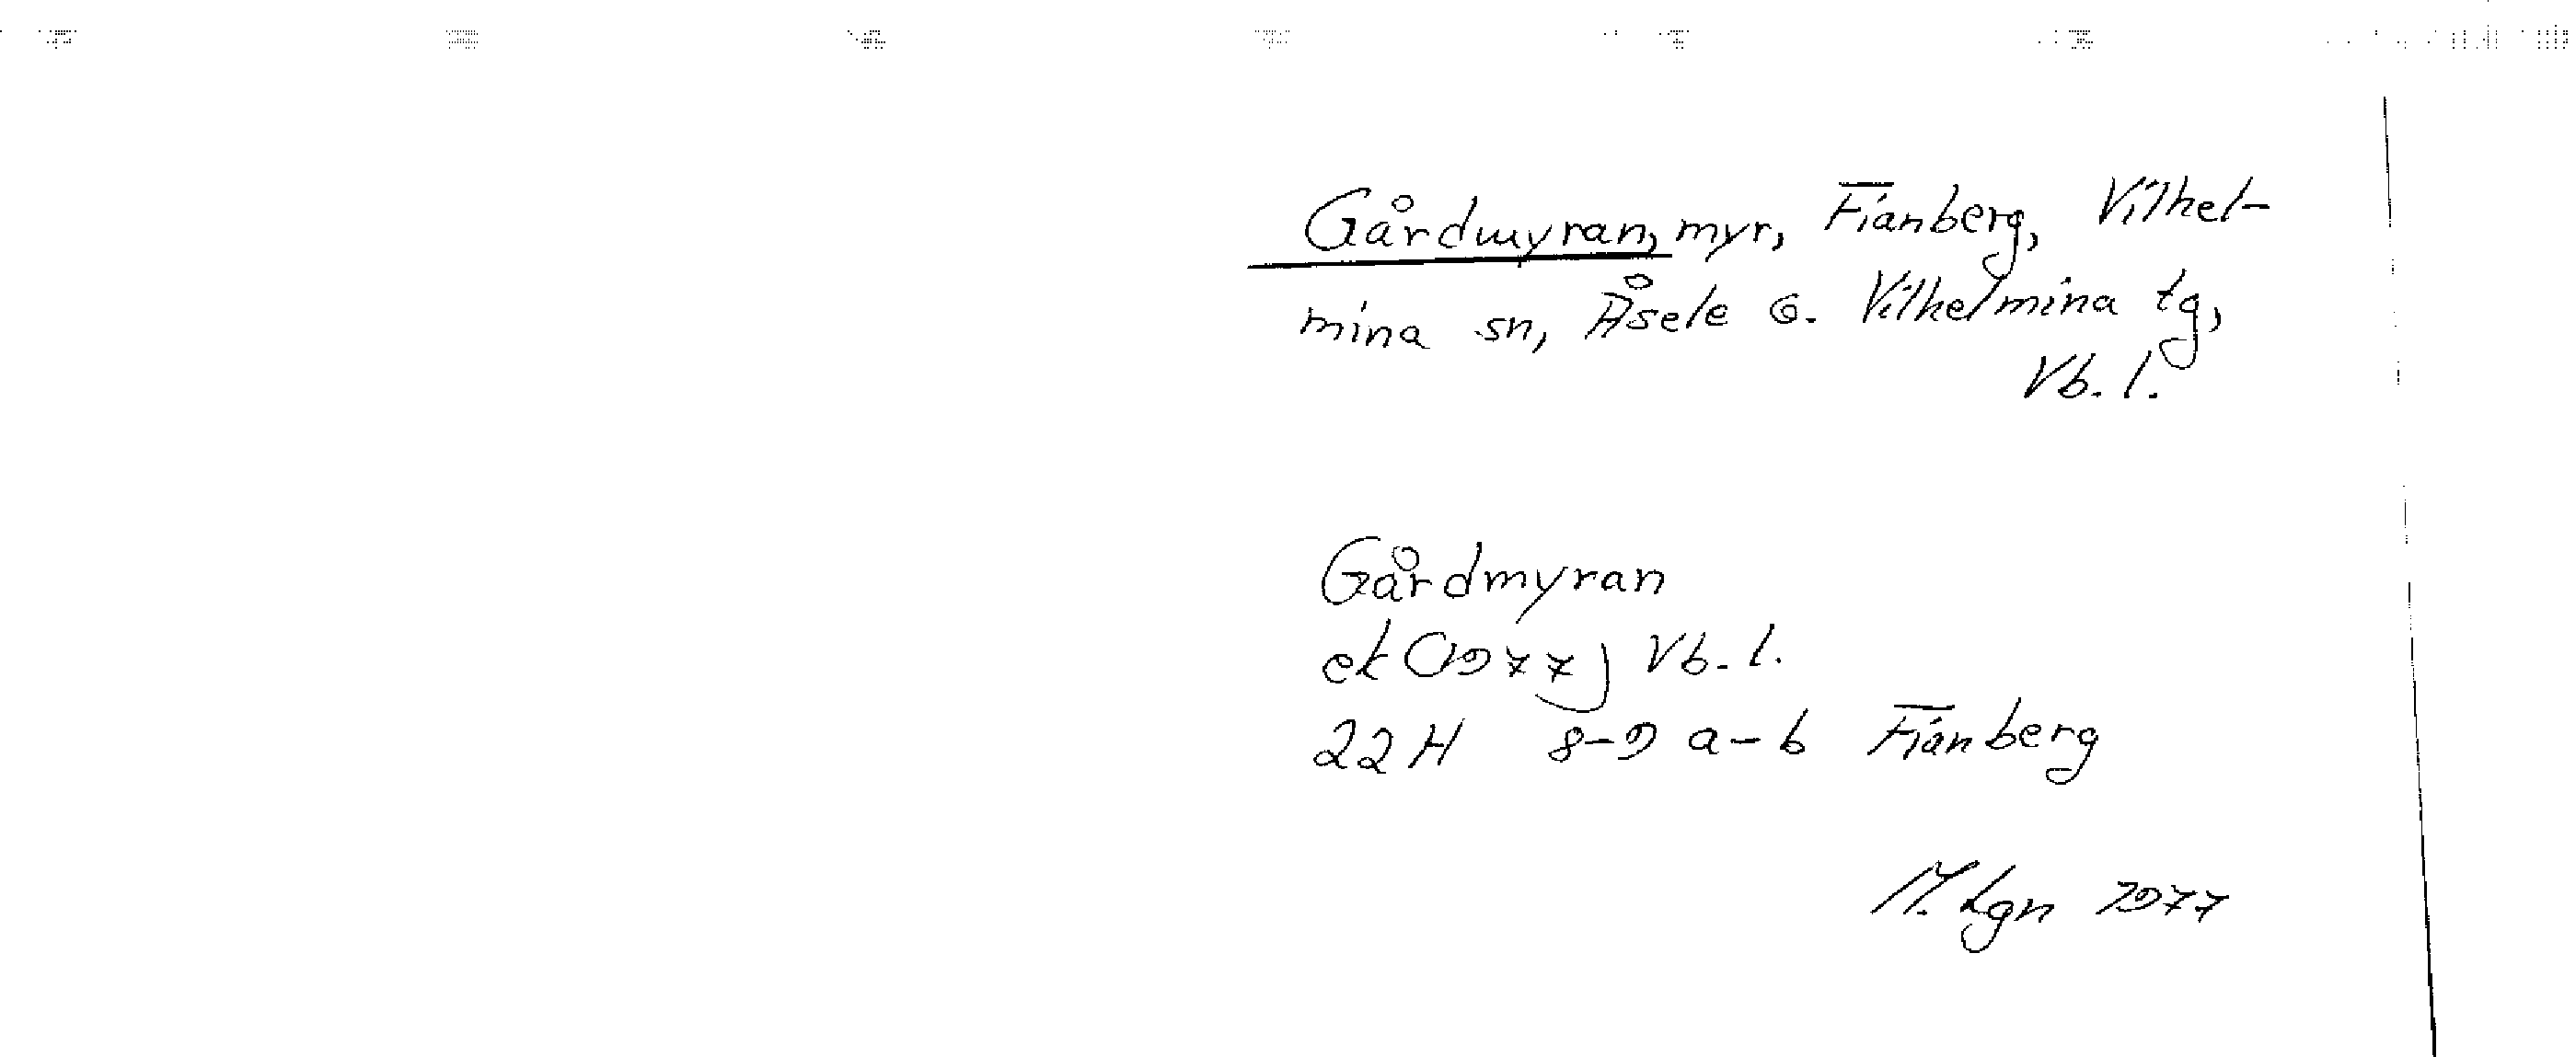 Gårdmyran, myr, Fianberg, Vilhel-
mina sn, Åsele o. Vilhelmina tg,
Vb. l.
Gårdmyran
ek (1977) Vb. l.
22 H 8-9 a-b Fianberg
M. Lgn 1977